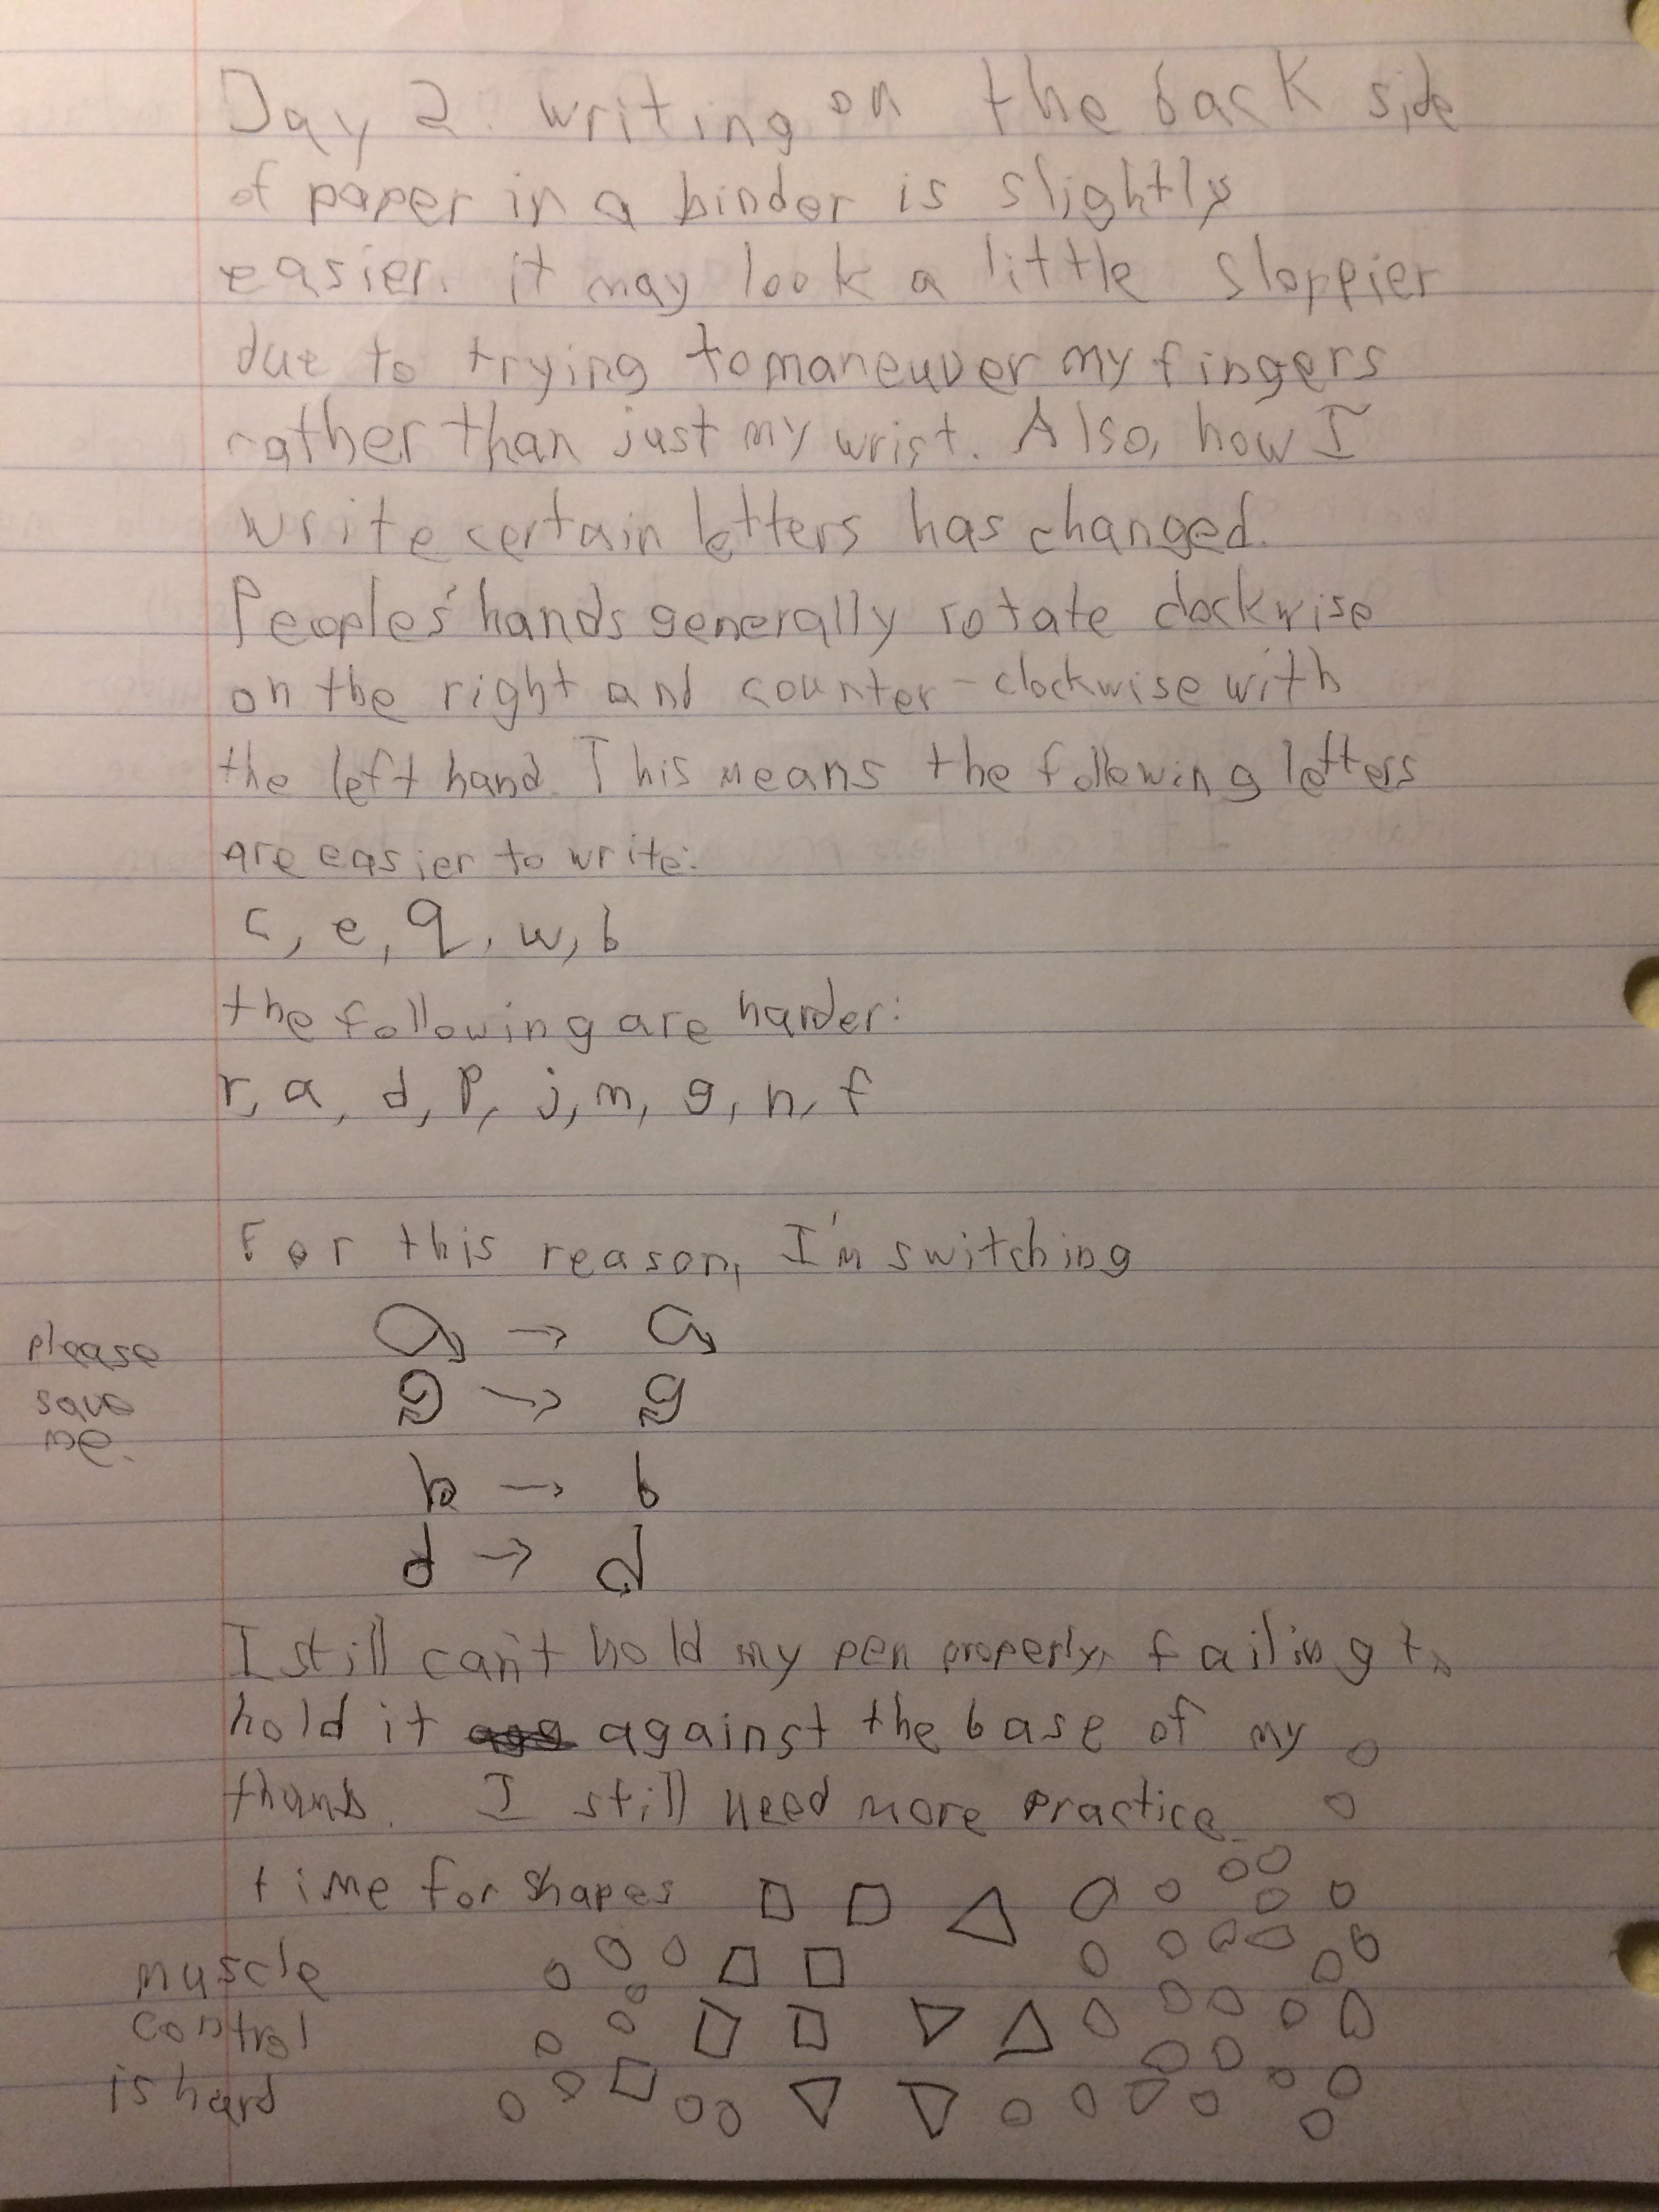 Day 2. writing on the back side
of paper in a binder is slightly
easier. it may look a little sloppier
due to trying to maneuver my fingers
rather than just my wrist. Also, how I
write certain letters has changed.
Peoples' hands generally rotate clockwise
on the right and counter-clockwise with
the left hand. This means the following letters
are easier to write:
c, e, q, w, b
the following are harder:
r, a, d, p, j, m, g, n, f
For this reason, I'm switching
a → a
please
g → g
save
me.
b → b
d → d
I still can't hold my pen properly, failing to
hold it against the base of my
thumb. I still need more practice
time for shapes
muscle
control
is hard